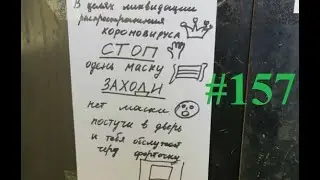 В целях ликвидации
распространения
короновируса
СТОП
одень маску
ЗАХОДИ
нет маски
постучи в дверь
и тебя обслужат
через форточку
#157